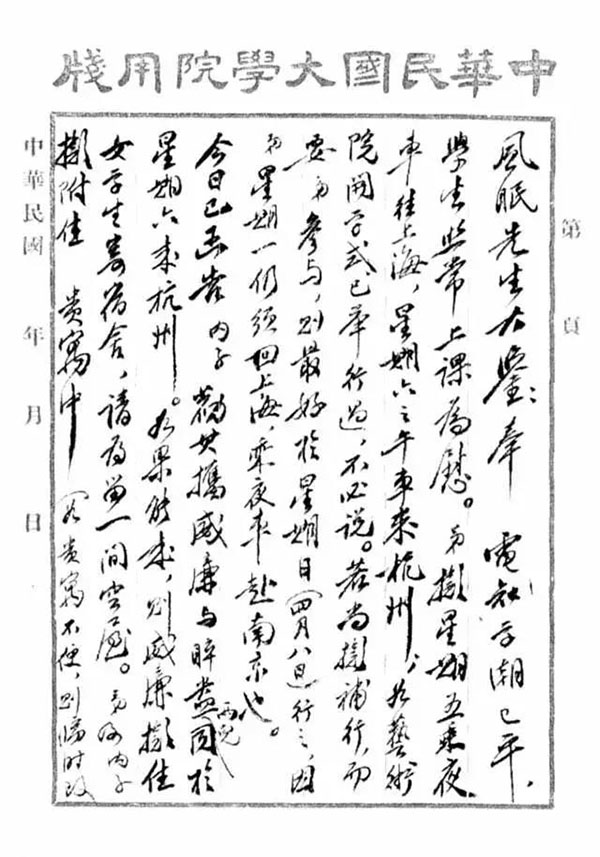 中華民國大學院用牋
第 頁
風眠先生大鑒：奉 電知学潮已平，
學生照常上課為慰。弟擬星期五乘夜
車往上海，星期六之午車來杭州，如藝術
院開学式已舉行過，不必説。若尚擬補行，而
要弟參与，則最好於星期日（四月八日）行之，因
弟星期一仍須回上海，乘夜車赴南京也。
今日已函告內子勸其攜威廉与睟盎兩兒同於
星期六來杭州。如果能來，則威廉擬住
女学生寄宿舍，請为留一間空屋。弟与內子
擬附住 貴寓中（若貴寓不便，則臨時改
中華民國 年 月 日